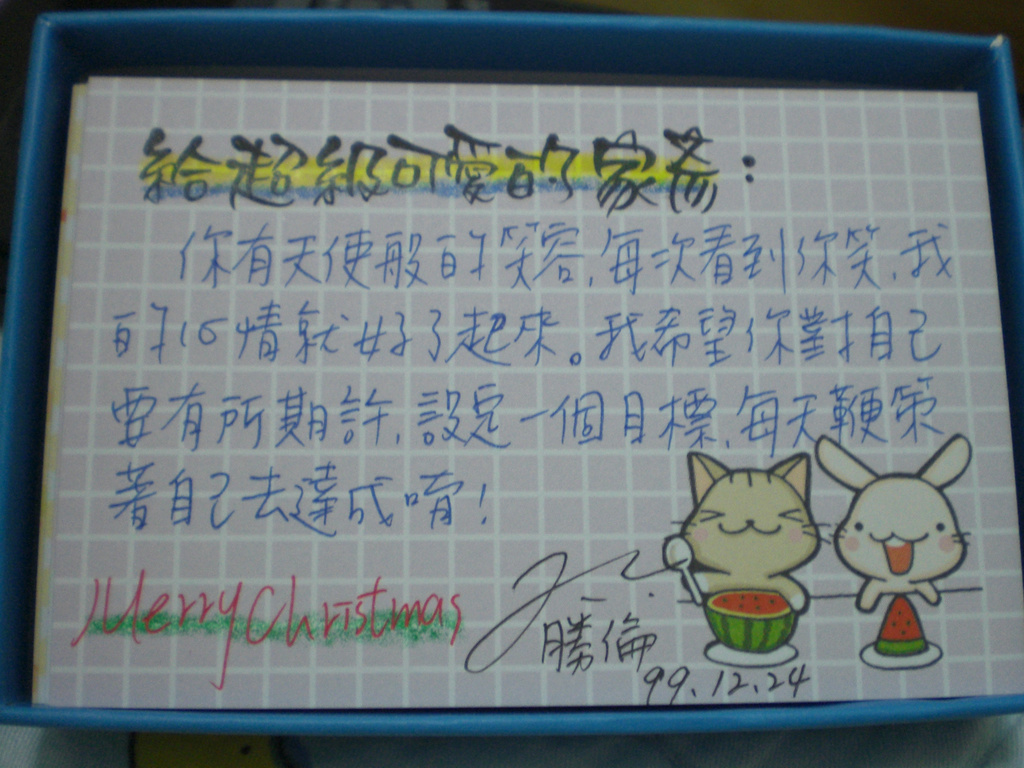 給超級可愛的家希：
你有天使般的笑容,每次看到你笑,我
的心情就好了起來。我希望你對自己
要有所期許,設定一個目標,每天鞭策
著自己去達成唷!
Merry Christmas
勝倫
99.12.24